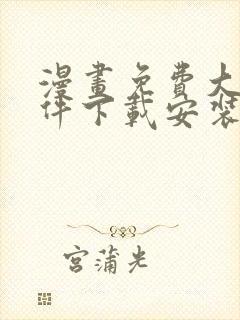 漫畫免費大
件下載安裝
宮蒲光